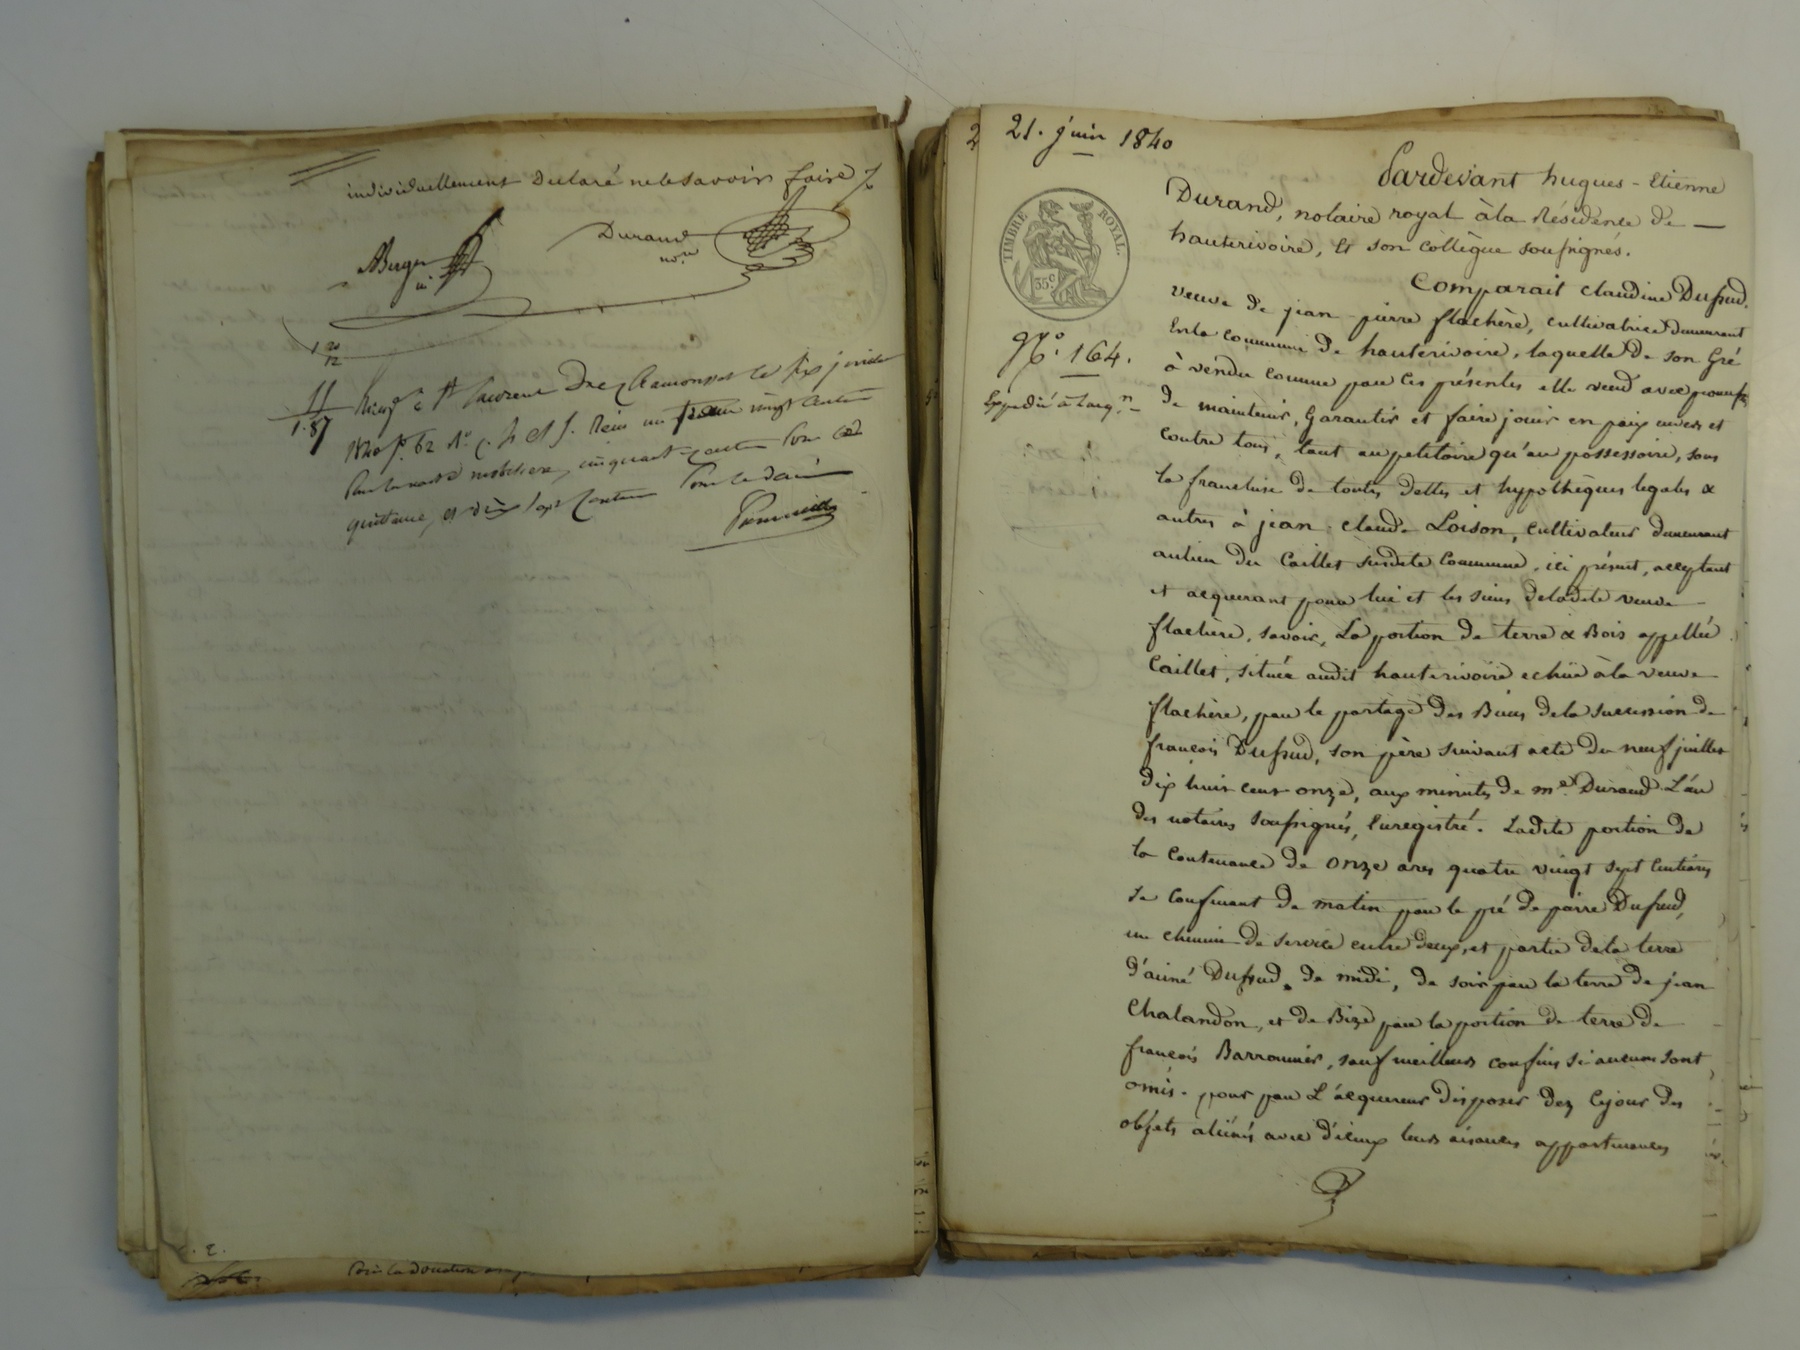 individuellement Declaré ne le savoir faire
Berger
Durand
nore
1 20
12
11
1.87
Enregé à St Laurent de Chamousset le six juillet
1840 fo. 62 Ro. c. 4 et 5. Reçu un franc vingt centimes
cinquante centimes pour
quittance, et dix sept centimes pour le dixième
2
21. juin 1840
TIMBRE ROYAL
35 c
No. 164.
Expédié à l'acq.n
Pardevant hugues-Etienne
Durand, notaire royal à la Résidence de —
hauterivoire, Et son collègue soussignés.
Comparait claudine Dussud.
veuve de jean-pierre flachère, cultivatrice demeurant
En la commune de hauterivoire, laquelle de son Gré
à vendu comme par ces présentes elle vend avec promesse
de maintenir, Garantir et faire jouir en paix envers et
contre tous, tant au petitoire qu'au possessoire, sous
la franchise de toutes Dettes et hypothèques légales &
autres à jean-claude Loison, cultivateur demeurant
au lieu du Caillet susdite Commune, ici présent, acceptant
et acquerant pour lui et les siens de ladite veuve
flachère, savoir, La portion de terre & Bois appellée
Caillet, située audit hauterivoire echüe à la veuve
flachère, par le partage des Biens de la succession de
françois Dussud, son père suivant acte du neuf juillet
dix huit cent onze, aux minutes de me. Durand L'un
des notaires soussignés, Enregistré. Ladite portion de
la contenance de onze ares quatre vingt sept Centiares
se confinant de matin par le pré de pierre Dussud,
un chemin de service entre deux, et partie de la terre
d'aimé Dussud, de midi, de soir par la terre de jean
Chalandon, et de Bize par la portion de terre de
françois Barrounier, sauf meilleurs confins si aucuns sont
omis. pour par L'acquereur disposer dez Cejour des
objets aliénés avec d'iceux leurs aisances appartenances